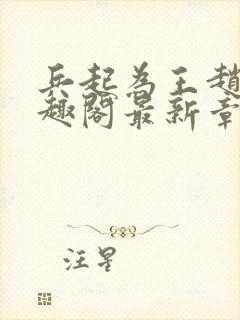 兵起为王趙
趣阁最新章
汪星